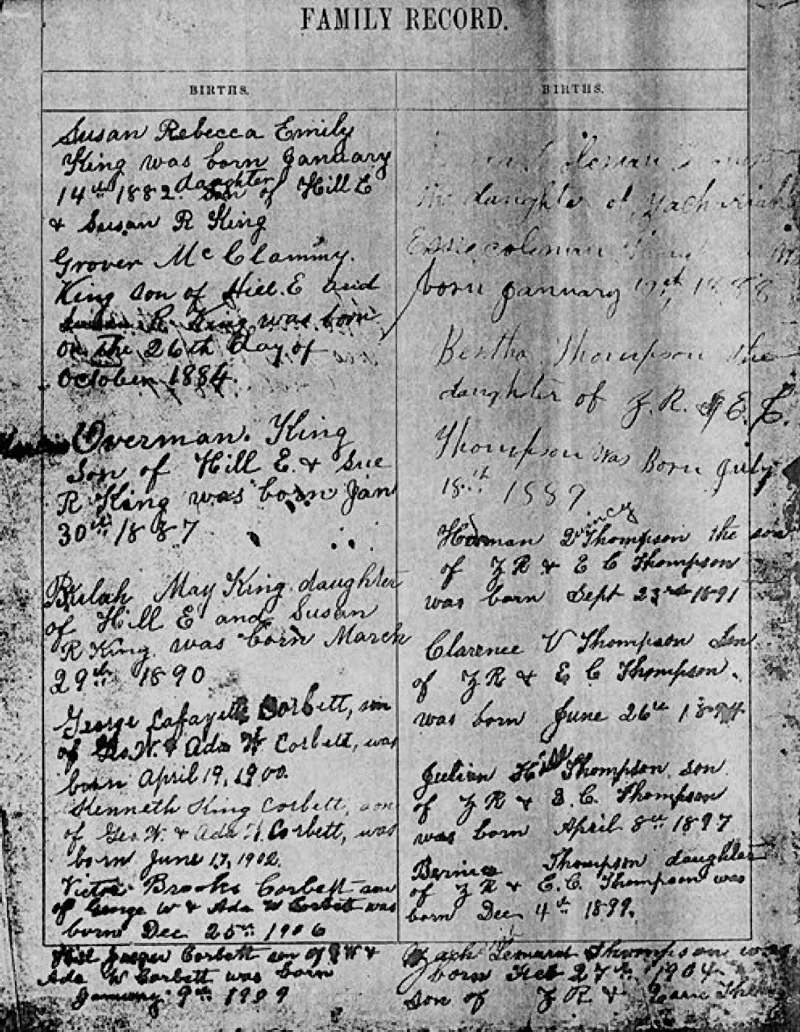 FAMILY RECORD.
BIRTHS.
Susan Rebecca Emily
King was born January
14th 1882. daughter Son of Hill E
& Susan R King
Grover McClammy.
King son of Hill. E and
Susan R King was born
on the 26th day of
October 1884.
Overman. King
Son of Hill E. & Sue
R King was born Jan
30th 1887
Bulah May King daughter
of Hill E and Susan
R King was born March
29th 1890
George Lafayette Corbett, son
of Geo W. & Ada W Corbett, was
born April 19, 1900.
Kenneth King Corbett, son
of Geo. W. & Ada W. Corbett, was
born June 17, 1902.
Victor Brooks Corbett son
of George W & Ada W Corbett was
born Dec 25th 1906
Hill Corbett son of G W &
Ada W Corbett was born
January 9th 1909
BIRTHS.
the daughter of
Essie coleman
born January 1888
Bertha Thompson the
daughter of Z. R. & E. C.
Thompson was Born July
18th 1889
Herman Quincy Thompson the son
of Z R & E C Thompson
was born Sept 23rd 1891
Clarence V Thompson Son
of Z R & E C Thompson.
was born June 26th
Julian Hill Thompson, son
of Z R & E. C. Thompson
was born April 8th 1897
Bernice Thompson daughter
of Z R & E. C. Thompson was
born Dec 4th 1899.
Zach Thompson was
born Feb 27th 1904
son of Z R &